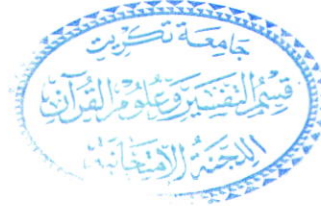 جَامِعَة تَكْرِيت
قِسْمُ التَّفْسِيرِ وَعُلُومِ الْقُرْآنِ
اللَّجْنَةُ الِامْتِحَانِيَّة